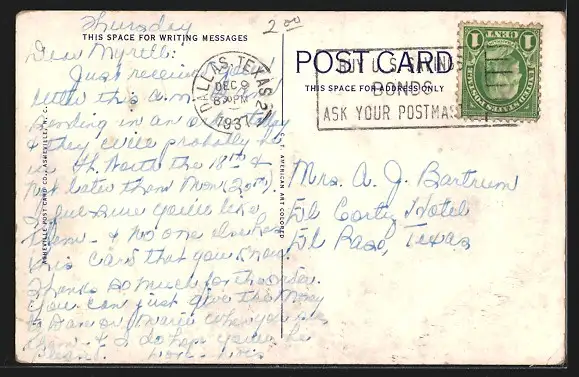 Thursday
2.00
THIS SPACE FOR WRITING MESSAGES
Dear Myrtll:
Just received your
letter this a.m. Am
sending in an order today
& they will probably be
in Ft. Worth the 18th &
not later than Mon (20th).
I feel sure you'll like
them - & no one else has
this card that you know.
Thanks so much for the order.
You can just give the money
to Dan or Marie when you see
them - & I do hope you'll be
pleased. Love -
POST CARD
THIS SPACE FOR ADDRESS ONLY
DALLAS, TEXAS 2
DEC 9
8 PM
1937
BUY U.S. SAVINGS
BONDS
ASK YOUR POSTMASTER
1 CENT 1
UNITED STATES POSTAGE
Mrs. A. J. Bartrum
El Cortez Hotel
El Paso, Texas
ASHEVILLE POST CARD CO., ASHEVILLE, N. C.
C. T. AMERICAN ART COLORED